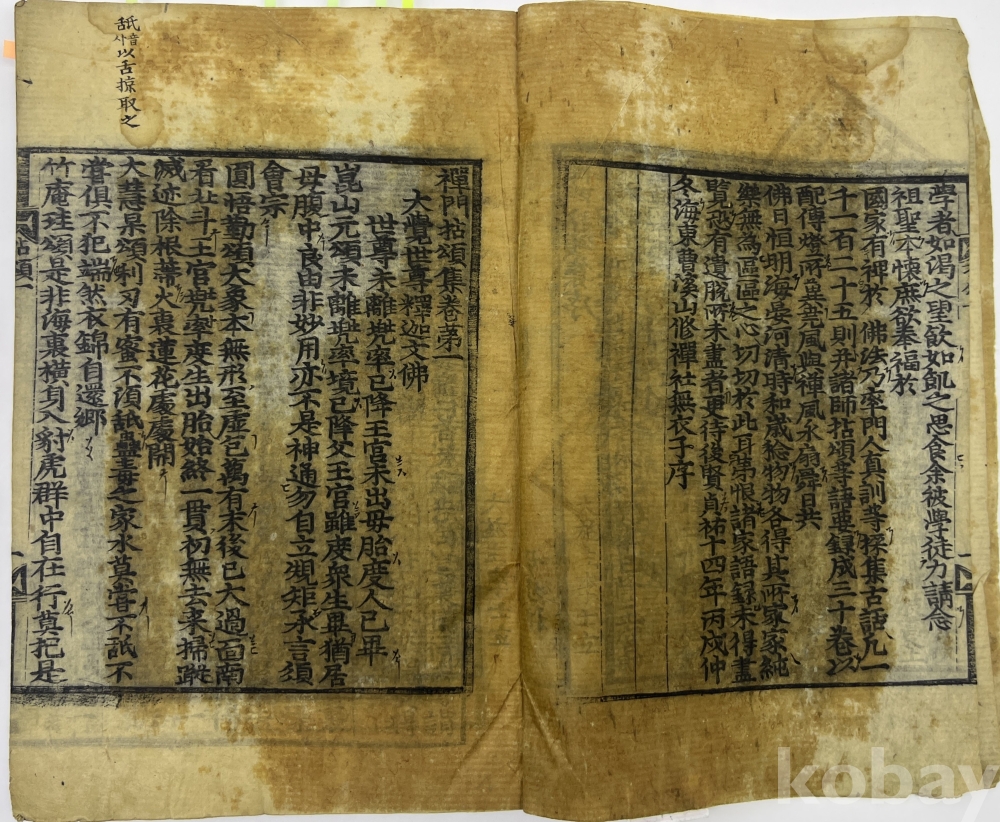 學者如渴之望飲如飢之思食余被學徒力請念
祖聖本懷庶欲奉福於
國家有裨於 佛法乃率門人真訓等採集古話凡一
千一百二十五則并諸師拈頌等語要錄成三十卷以
配傳燈所冀堯風與禪風永扇舜日共
佛日恒明海晏河清時和歲稔物物各得其所家家純
樂無為區區之心切切於此耳第恨諸家語錄未得盡
覽恐有遺脫所未盡者更待後賢貞祐十四年丙戌仲
冬海東曹溪山修禪社無衣子序
舐音사以舌掠取之
禪門拈頌集卷第一
大覺世尊釋迦文佛
世尊未離兜率已降王宮未出母胎度人已畢
崑山元頌未離兜率境已降父王宮雖度衆生畢猶居
母腹中良由非妙用亦不是神通勿自立規矩承言須
會宗
圓悟勤頌大象本無形至虛包萬有末後已大過面南
看北斗王宮兜率度生出胎始終一貫初無去來掃蹤
滅迹除根蔕火裏蓮花處處開
大慧杲頌利刃有蜜不須舐蠱毒之家水莫嘗不舐不
嘗俱不犯端然衣錦自還鄉
竹庵珪頌是非海裏橫身入豺虎群中自在行莫把是
kobay